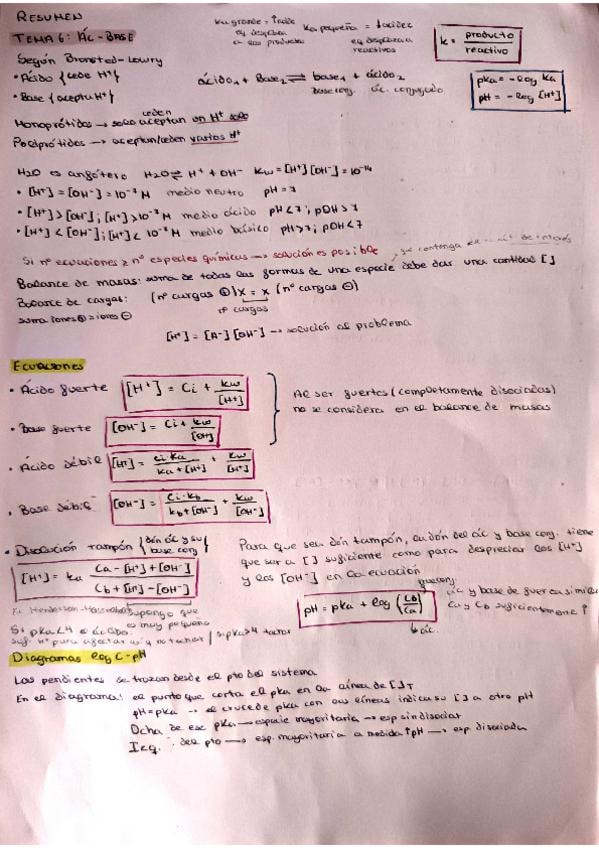 RESUMEN
TEMA 6: ÁC-BASE
Ka grande = ↑acidez
eq desplaza
a los productos
Ka pequeña = ↓acidez
eq desplaza a
reactivos
k = producto / reactivo
Según Bronsted-Lowry
• Ácido {cede H⁺}
• Base {acepta H⁺}
ácido₁ + Base₂ ⇌ base₁ + ácido₂
base conj. ác. conjugado
pKa = -log Ka
pH = -log [H⁺]
ceden
Monopróticos → solo aceptan un H⁺ solo
Polipróticos → aceptan/ceden varios H⁺
H₂O es anfótero H₂O ⇌ H⁺ + OH⁻ Kw = [H⁺][OH⁻] = 10⁻¹⁴
• [H⁺] = [OH⁻] = 10⁻⁷ M medio neutro pH = 7
• [H⁺] > [OH⁻]; [H⁺] > 10⁻⁷ M medio ácido pH < 7; pOH > 7
• [H⁺] < [OH⁻]; [H⁺] < 10⁻⁷ M medio básico pH > 7; pOH < 7
Si nº ecuaciones ≥ nº especies químicas → solución es posible
se contenga en de interés
Balance de masas: suma de todas las formas de una especie debe dar una cantidad []
Balance de cargas: (nº cargas ⊕) x = x (nº cargas ⊖)
suma iones ⊕ = iones ⊖
nº cargas
[H⁺] = [A⁻] [OH⁻] → solución al problema
Ecuaciones
• Ácido fuerte [H⁺] = Ci + Kw / [H⁺]
• Base fuerte [OH⁻] = Ci + Kw / [OH]
Al ser fuertes (completamente disociadas)
no se considera en el balance de masas
• Ácido débil [H⁺] = Ci·Ka / Ka + [H⁺] + Kw / [H⁺]
• Base débil [OH⁻] = Ci·Kb / Kb + [OH⁻] + Kw / [OH⁻]
• Disolución tampón {dón ác y su base conj}
[H⁺] = Ka Ca - [H⁺] + [OH⁻] / Cb + [H⁺] - [OH⁻]
Para que sea dón tampón, la dón del ác y base conj. tiene
que ser a [] suficiente como para despreciar los [H⁺]
y los [OH⁻] en la ecuación
pH = pKa + log (Cb / Ca)
ác.
ác y base de fuerza similar
Ca y Cb suficientemente ↑
Supongo que
es muy pequeño
Si pKa < 4
Diagramas log C-pH
Las pendientes se trazan desde el pto del sistema
En el diagrama: el punto que corta el pKa en la línea de []T
pH = pKa → el cruce de pKa con las líneas indica su [] a otro pH
Dcha de ese pKa → especie mayoritaria → esp sin disociar
Izq. del pto → esp. mayoritaria a medida ↑pH → esp. disociada